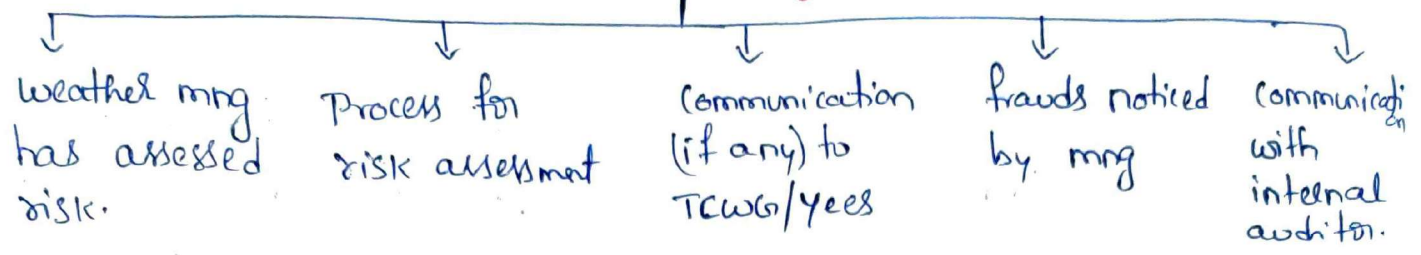 weather mng
has assessed
risk.
Process for
risk assessment
Communication
(if any) to
TCWG/Yees
frauds noticed
by mng
Communicati
on
with
internal
auditor.